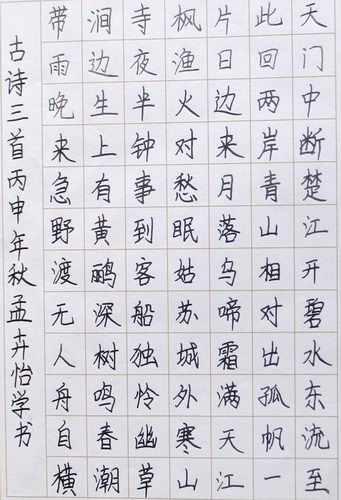 天门中断楚江开碧水东流至
此回两岸青山相对出孤帆一
片日边来月落乌啼霜满天江
枫渔火对愁眠姑苏城外寒山
寺夜半钟事到客船独怜幽草
涧边生上有黄鹂深树鸣春潮
带雨晚来急野渡无人舟自横
古诗三首丙申年秋孟卉怡学书